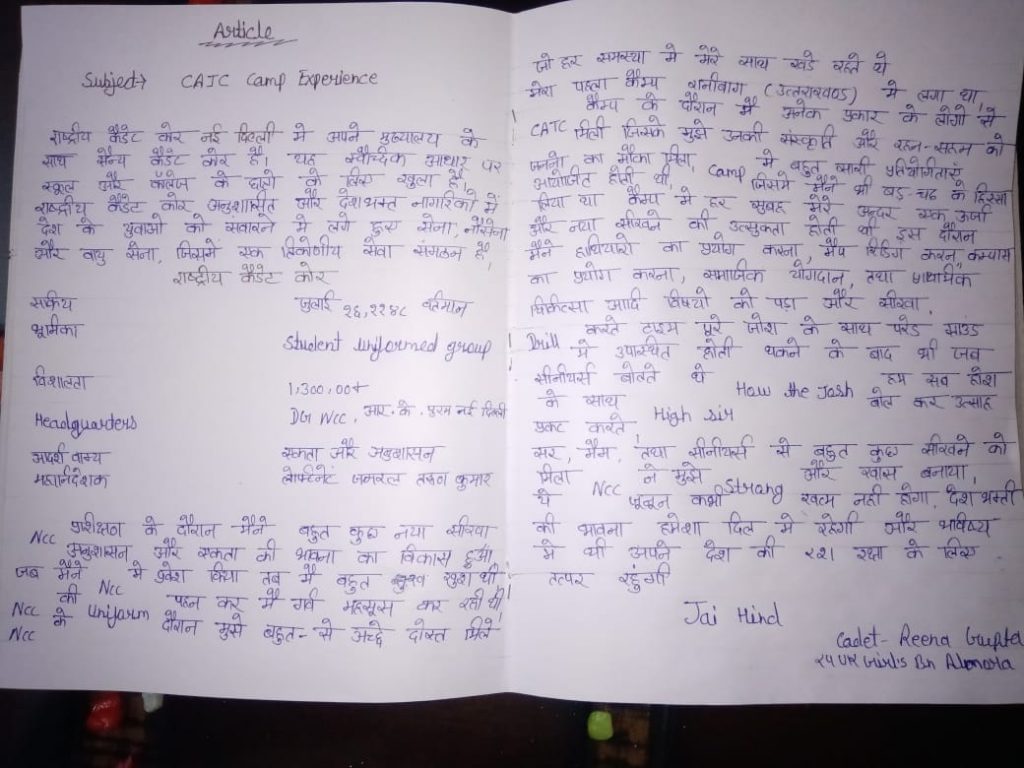 Article
Subject→ CATC Camp Experience
राष्ट्रीय कैडेट कोर नई दिल्ली मे अपने मुख्यालय के
साथ सैन्य कैडेट कोर है। यह स्वैच्छिक आधार पर
स्कूल और कॉलेज के छात्रो के लिए खुला है,
राष्ट्रीय कैडेट कोर अनुशासित और देशभक्त नागरिको में
देश के युवाओ को सवारने मे लगे हुए सेना, नौसेना
और वायु सेना, जिसमे एक त्रिकोणीय सेवा संगठन है,
राष्ट्रीय कैडेट कोर
सक्रीय जुलाई २६,१९४८ वर्तमान
भूमिका Student uniformed group
विशालता 1,300,00+
Headquarders DG NCC, आर. के. पुरम नई दिल्ली
आदर्श वाक्य एकता और अनुशासन
महानिदेशक लेफ्टिनेंट जनरल तरुण कुमार
NCC प्रशीक्षण के दौरान मैने बहुत कुछ नया सीखा
अनुशासन और एकता की भावना का विकास हुआ,
जब मैने NCC मे प्रवेश किया तब मै बहुत खुश थी
NCC की Uniform पहन कर मै गर्व महसूस कर रही थी,
NCC के दौरान मुझे बहुत-से अच्छे दोस्त मिले
जो हर समस्या मे मेरे साथ खडे रहते थे
मेरा पहला कैम्प रानीबाग (उत्तराखण्ड) मे लगा था,
CATC कैम्प के दौरान मै अनेक प्रकार के लोगो से
मिली जिसके मुझे उनकी संस्कृति और रहन-सहन को
जानने का मौका मिला, Camp मे बहुत सारी प्रतियोगीताएं
आयोजित होती थी, जिसमे मैने भी बड़-चढ के हिस्सा
लिया था कैम्प मे हर सुबह मेरे अन्दर एक ऊर्जा
और नया सीखने की उत्सुकता होती थी इस दौरान
मैने हाथियारो का प्रयोग करना, मैप रिडिंग करन, कम्पास
का प्रयोग करना, समाजिक योगदान, तथा प्राथमिक
चिकित्सा आदि विषयो को पड़ा और सीखा,
Drill करते टाइम पूरे जोश के साथ परेड ग्राउंड
मे उपास्थित होती थकने के बाद भी जब
सीनीयर्स बोलते थे How the Josh हम सब होश
के साथ High sir बोल कर उत्साह
प्रकट करते
सर, मैम, तथा सीनीयर्स से बहुत कुछ सीखने को
मिला NCC ने मुझे Strong और खास बनाया,
ये जूनून कभी खत्म नही होगा, देश भक्ती
की भावना हमेशा दिल मे रहेगी और भविष्य
मे भी अपने देश की रक्षा के लिए
तत्पर रहुंगी
Jai Hind
Cadet- Reena Gupta
२५ UK Girl's Bn Almora